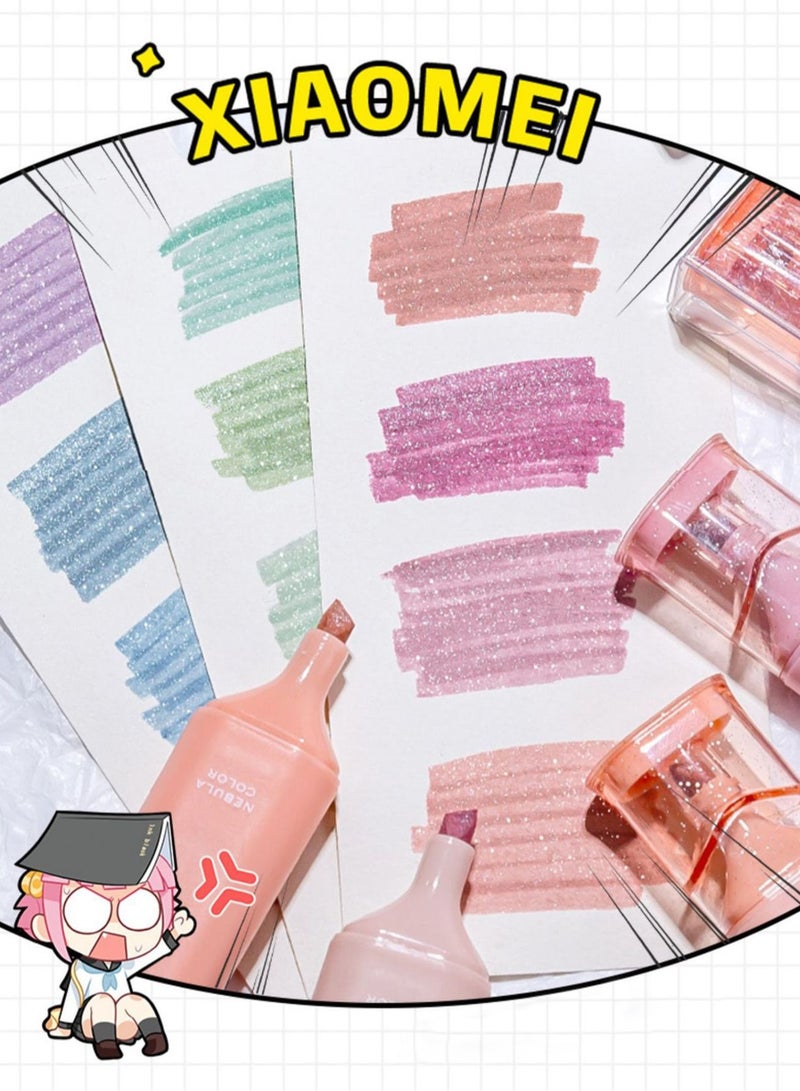 XIAOMEI
NEBULA
COLOR